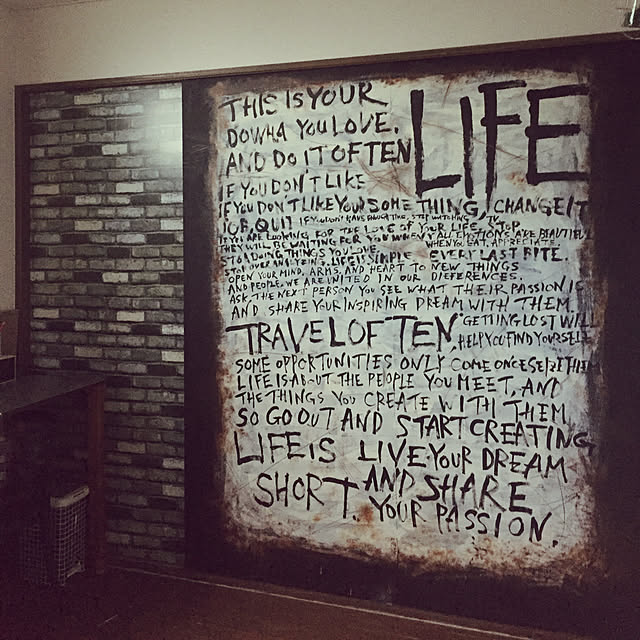 THIS IS YOUR LIFE
DO WHA YOU LOVE,
AND DO IT OFTEN
IF YOU DON'T LIKE
IF YOU DON'T LIKE YOUR SOME THING, CHANGE IT
JOB, QUIT IF YOU DON'T HAVE ENOUGH TIME, STOP WATCHING TV
IF YOU ARE LOOKING FOR THE LOVE OF YOUR LIFE, STOP
THEY WILL BE WAITING FOR YOU WHEN YOU ALL EMOTIONS ARE BEAUTIFUL
START DOING THINGS YOU LOVE. WHEN YOU EAT, APPRECIATE
STOP OVER ANALYZING. LIFE IS SIMPLE EVERY LAST BITE.
OPEN YOUR MIND, ARMS, AND HEART TO NEW THINGS
AND PEOPLE. WE ARE UNITED IN OUR DIFFERENCES.
ASK THE NEXT PERSON YOU SEE WHAT THEIR PASSION IS
AND SHARE YOUR INSPIRING DREAM WITH THEM.
TRAVEL OFTEN. GETTING LOST WILL
HELP YOU FIND YOURSELF
SOME OPPORTUNITIES ONLY COME ONCE SEIZE THEM
LIFE IS ABOUT THE PEOPLE YOU MEET, AND
THE THINGS YOU CREATE WITH THEM
SO GO OUT AND START CREATING
LIFE IS LIVE YOUR DREAM
SHORT. AND SHARE
YOUR PASSION.